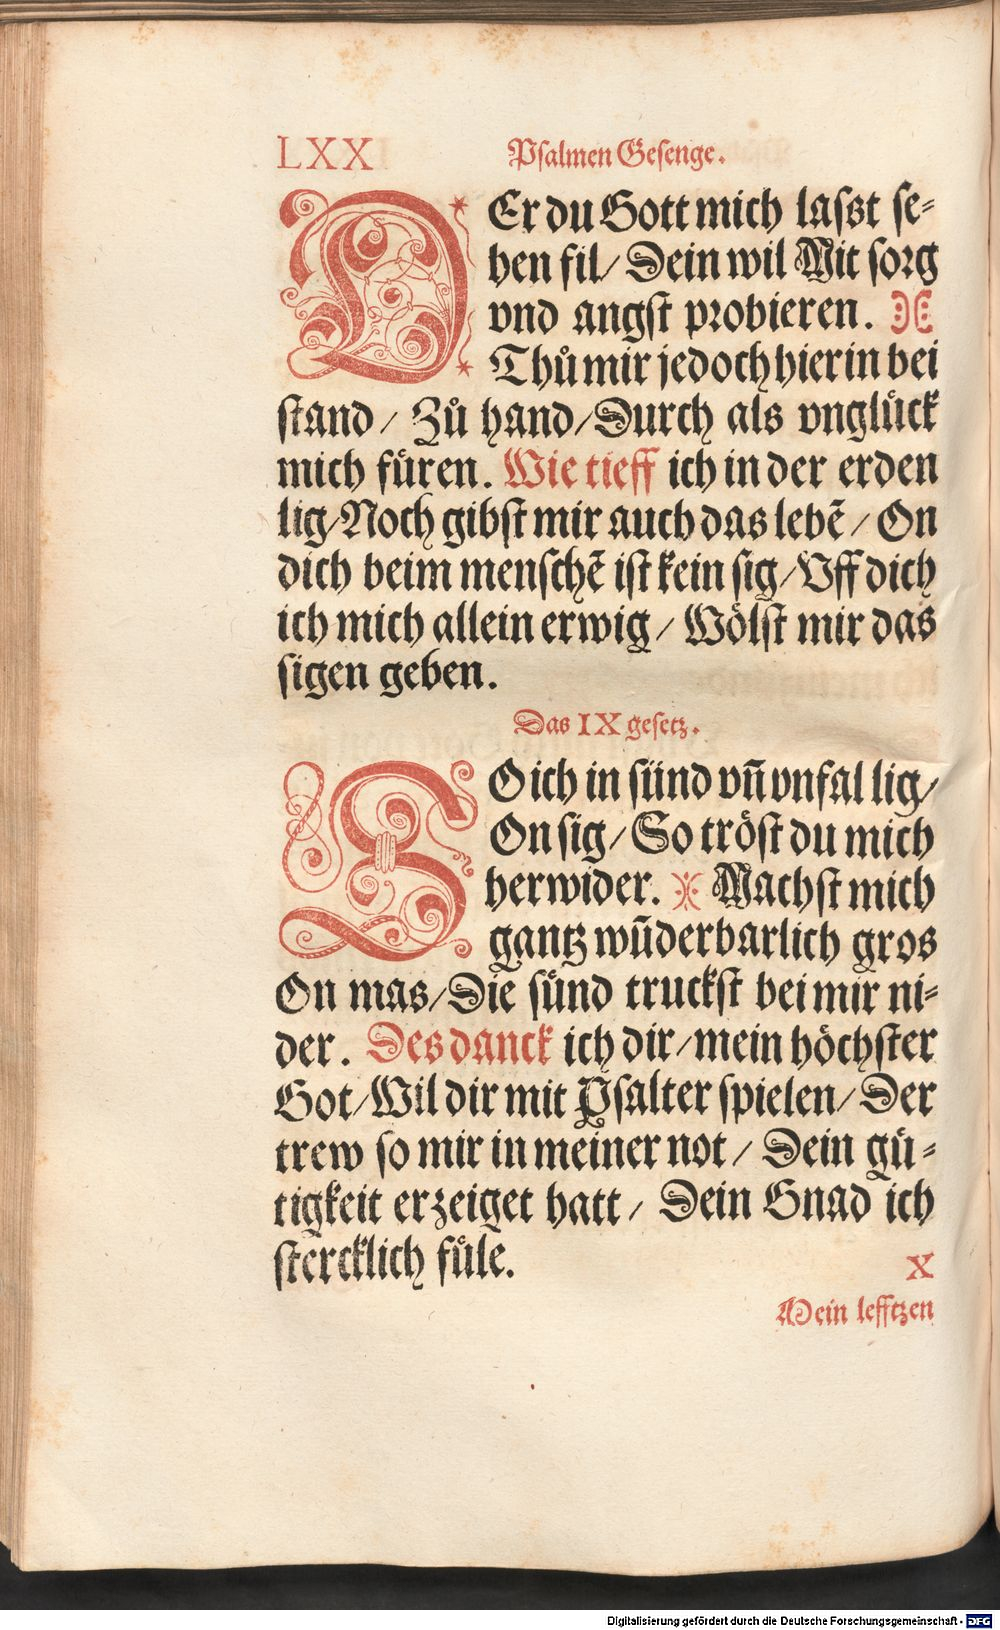 LXXI Psalmen Gesenge.
DEr du Gott mich lasst se⸗
hen fil / Dein wil Mit sorg
vnd angst probieren.
Thů mir jedoch hierin bei
stand / Zů hand / Durch als vnglück
mich füren. Wie tieff ich in der erden
lig / Noch gibst mir auch das lebẽ / On
dich beim menschẽ ist kein sig / Vff dich
ich mich allein erwig / Wölst mir das
sigen geben.
Das IX gesetz.
SO ich in sünd vñ vnfal lig /
On sig / So tröst du mich
herwider. Machst mich
gantz wũderbarlich gros
On mas / Die sünd truckst bei mir ni⸗
der. Des danck ich dir / mein höchster
Got / Wil dir mit Psalter spielen / Der
trew so mir in meiner not / Dein gü⸗
tigkeit erzeiget hatt / Dein Gnad ich
stercklich füle.
X
Mein lefftzen
Digitalisierung gefördert durch die Deutsche Forschungsgemeinschaft - DFG